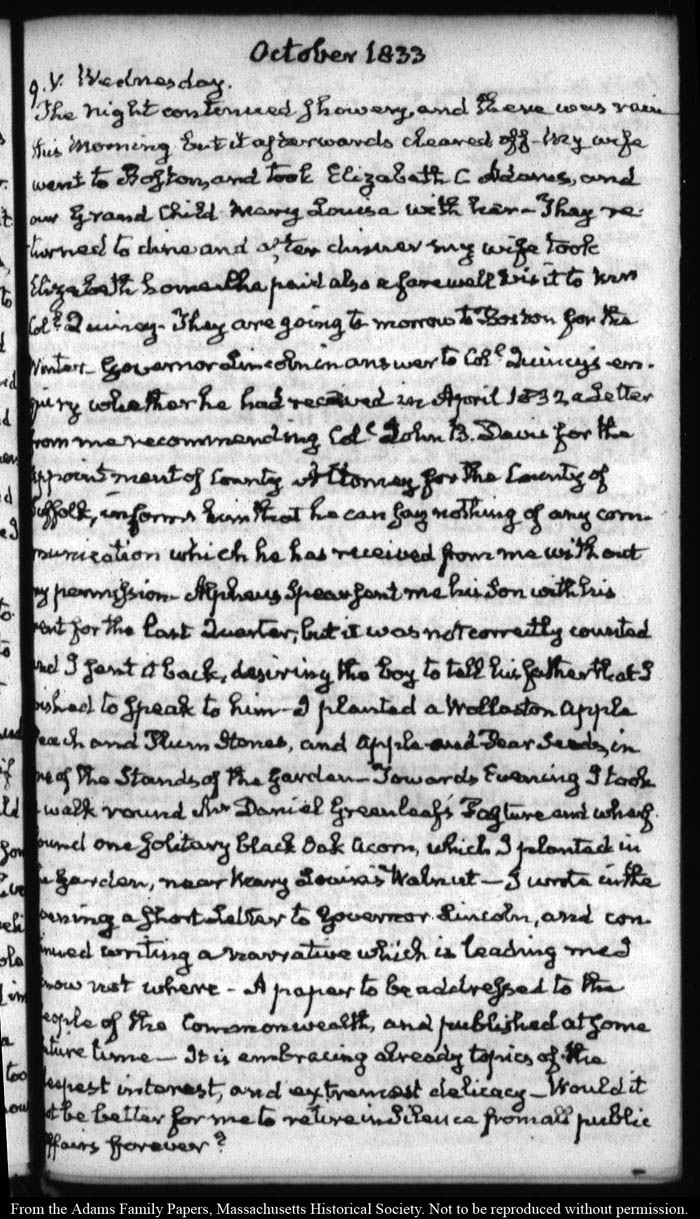 October 1833
9. V. Wednesday.
The night continued showery, and there was rain
this Morning but it afterwards cleared off - My wife
went to Boston, and took Elizabeth C Adams, and
our Grand Child Mary Louisa with her - They re-
turned to dine and after dinner my wife took
Elizabeth home. She paid also a farewell visit to Mrs
Coll. Quincy - They are going to morrow to Boston for the
Winter - Governor Lincoln in answer to Coll. Quincy's en-
quiry whether he had received in April 1832 a Letter
from me recommending Coll. John B. Davis for the
appointment of County Attorney for the County of
Suffolk, informs him that he can say nothing of any com-
munication which he has received from me without
my permission - Alpheus Spear sent me his Son with his
rent for the last Quarter; but it was not correctly counted
and I sent it back, desiring the boy to tell his father that I
wished to speak to him - I planted a Wollaston Apple
Peach and Plum Stones, and Apple and Pear Seeds, in
one of the Stands of the Garden - Towards Evening I took
a walk round Mr Daniel Greenleaf's Pasture and wharf.
found one solitary black Oak acorn, which I planted in
the Garden, near Mary Louisa's Walnut - I wrote in the
evening a short Letter to Governor Lincoln, and con-
tinued writing a narrative which is leading me I
know not where - A paper to be addressed to the
People of the Commonwealth, and published at some
future time - It is embracing already topics of the
deepest interest, and extremest delicacy - Would it
not be better for me to retire in Silence from all public
affairs forever?
From the Adams Family Papers, Massachusetts Historical Society. Not to be reproduced without permission.